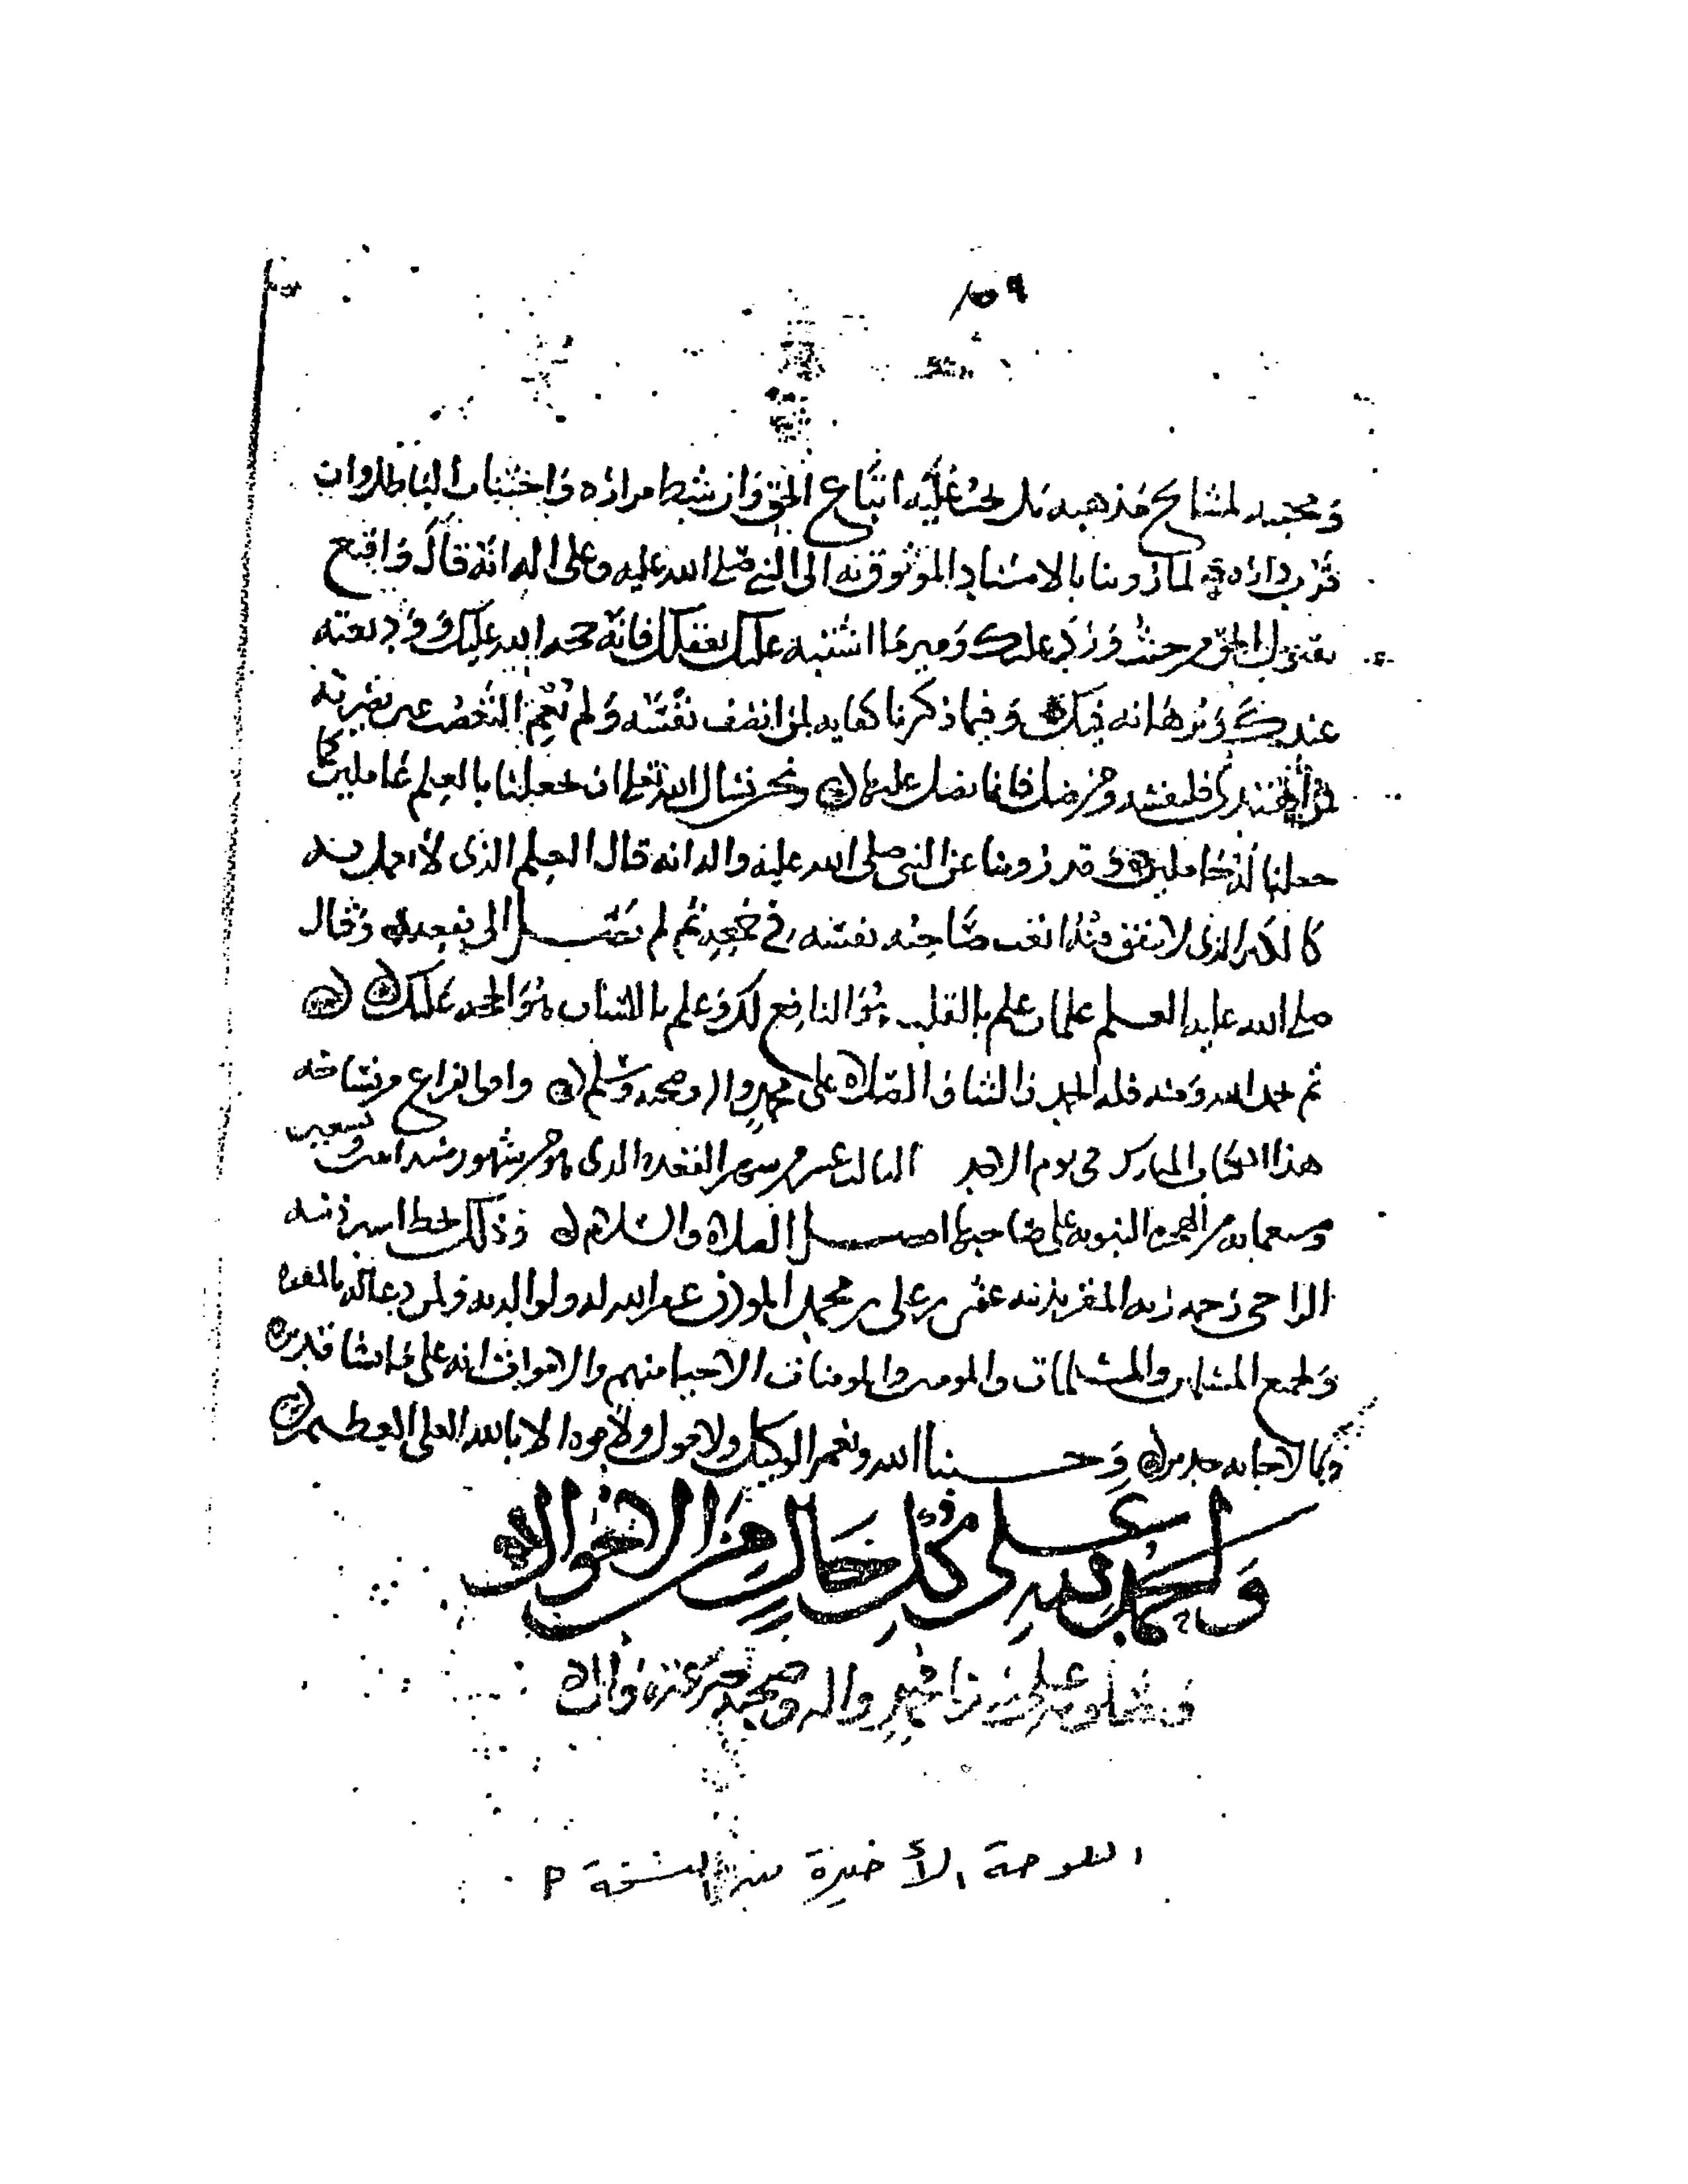 ومحبته لمشايخ مذهبه بل يجب عليه اتباع الحق وان شط مزاره واجتناب الباطل وان
قرب داره لما روينا بالاسناد الموثوق به الى النبي صلى الله عليه وعلى اله انه قال واقنع
بقبول الحق من حيث ورد عليك وميز ما اشتبه عليك بعقلك فانه حجة الله عليك ووديعته
عندك وبرهانه فيك وفيما ذكرنا كفاية لمن انصف نفسه ولم التعصب عين بصيرته
فمن اهتدى فلنفسه ومن ضل فانما يضل عليها ونحن نسال الله تعالى ان يجعلنا بالعلم عاملين كما
جعلنا له حاملين وقد روينا عن النبي صلى الله عليه واله انه قال العلم الذي لا يعمل به
كالكنز الذي لا ينفق منه اتعب صاحبه نفسه في جمعه ثم لم يصل الى نفعه وقال
صلى الله عليه العلم علمان علم بالقلب هو النافع لك وعلم باللسان هو الحجة عليك
ثم بحمد الله ومنه فله الحمد والثنا والصلاة على محمد واله وصحبه وسلم الفراغ من نساخه
هذا الكتاب المبارك في يوم الاحد الثالث عشر من شهر القعده الذي هو من شهور سنه وتسعين
وسبعمايه من الهجرة النبويه على صاحبها افضل الصلاه والسلام وذلك بخط اسير ذنبه
الراجي رحمة ربه المقر بذنبه بن علي بن محمد عفر الله له ولوالديه ولمن دعا له بالمغفره
ولجميع المسلمين والمسلمات والمومنين والمومنات الاحيا منهم والاموات انه على ما يشا قدير
وبالاجابه جدير وحسبنا الله ونعم الوكيل ولا حول ولا قوه الا بالله العلي العظيم
والحمد لله على كل حال من الاحوال
وصلوته على سيدنا محمد واله وصحبه خير عترة وال
اللوحة الأخيرة من النسخة م